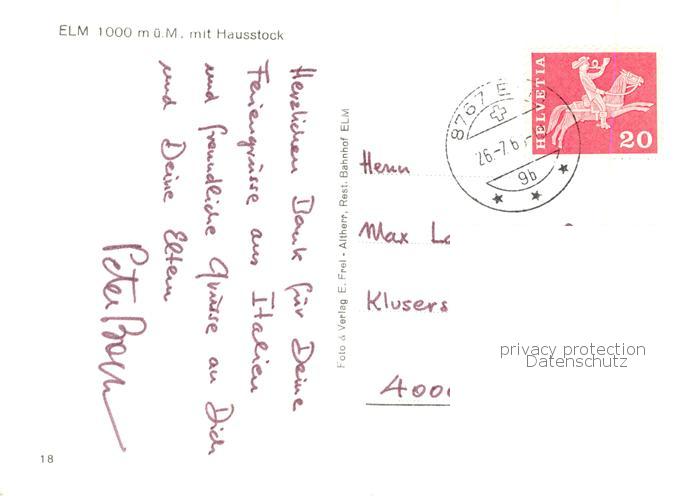 ELM 1000 m ü.M. mit Hausstock
Herzlichen Dank für Deine
Feriengrüsse aus Italien
und freundliche Grüsse an Dich
und Deine Eltern
Peter
Foto & Verlag E. Frei - Altherr, Rest. Bahnhof ELM
8767 E
26.-7.6
9b
HELVETIA
20
Herrn
Max
Klusers
400
privacy protection
Datenschutz
18